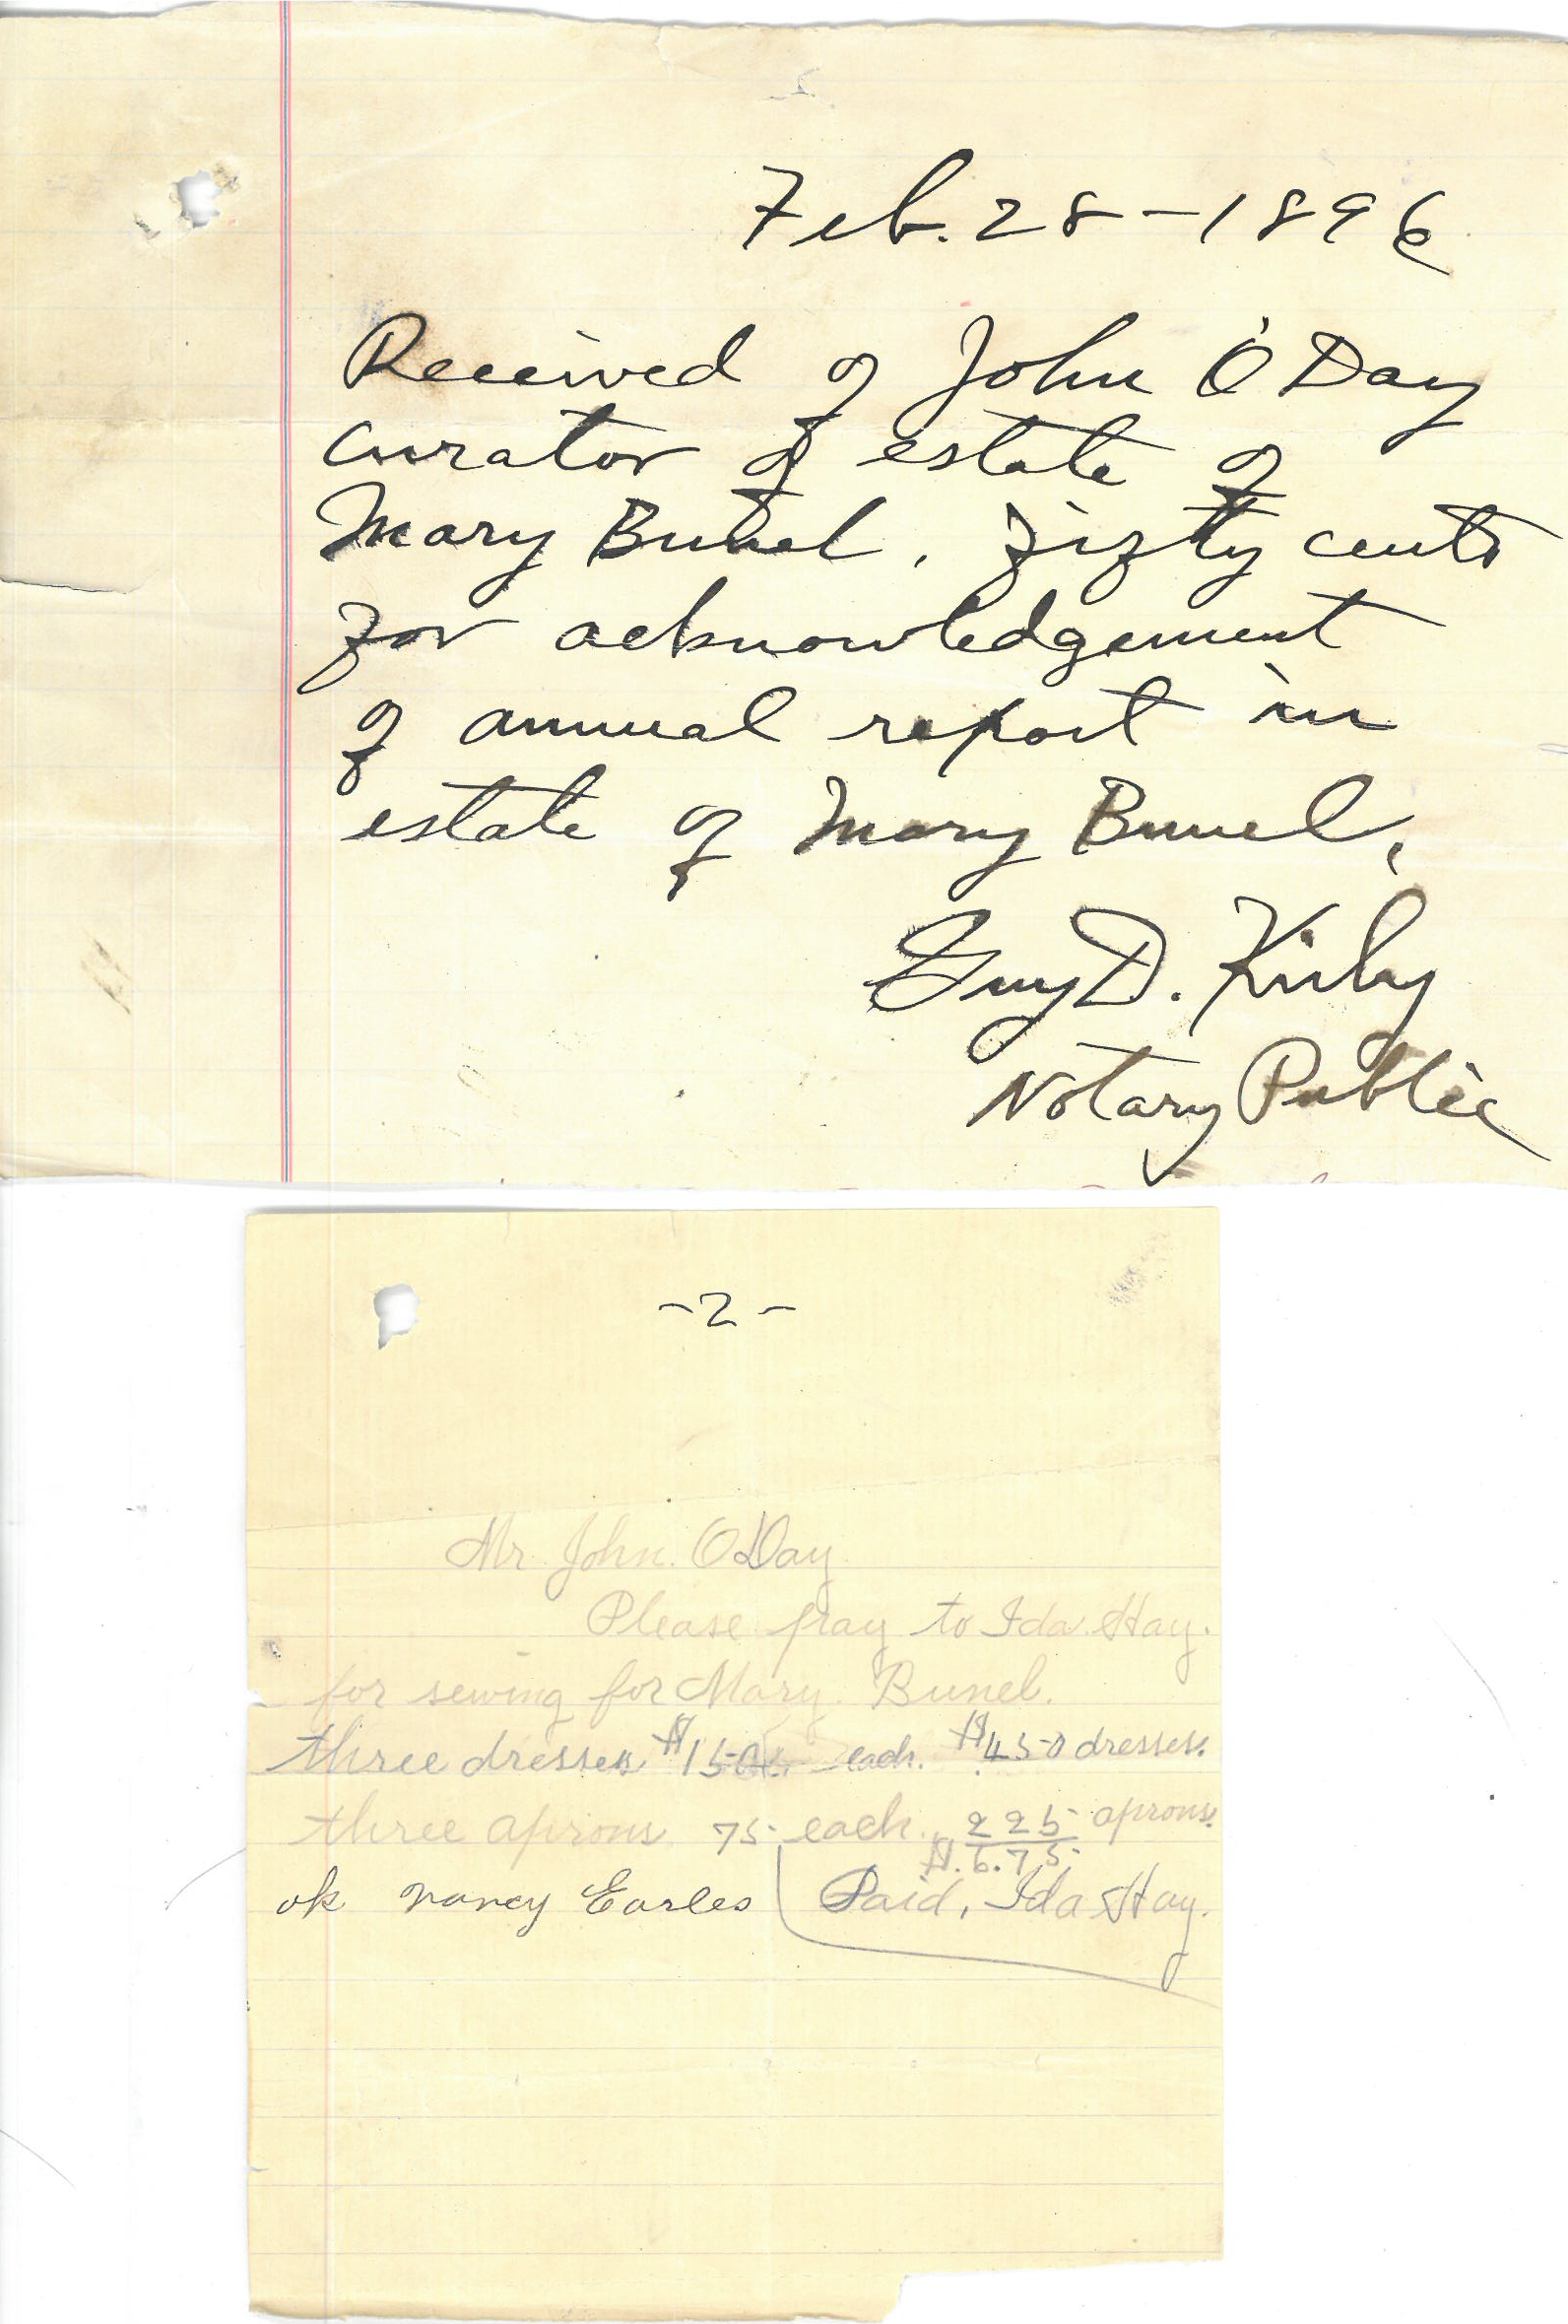 Feb. 28 - 1896
Received of John O'Day
curator of estate of
Mary Bunel, Fifty cents
for acknowledgement
of annual report in
estate of Mary Bunel,
Guy D. Kirby
Notary Public
- 2 -
Mr. John. O'Day
Please pay to Ida Hay.
for sewing for Mary. Bunel.
three dresses $1 50 each. $4 50 dresses.
three aprons 75 each. 2 25 aprons.
$. 6. 75.
ok Nancy Earles Paid, Ida Hay.